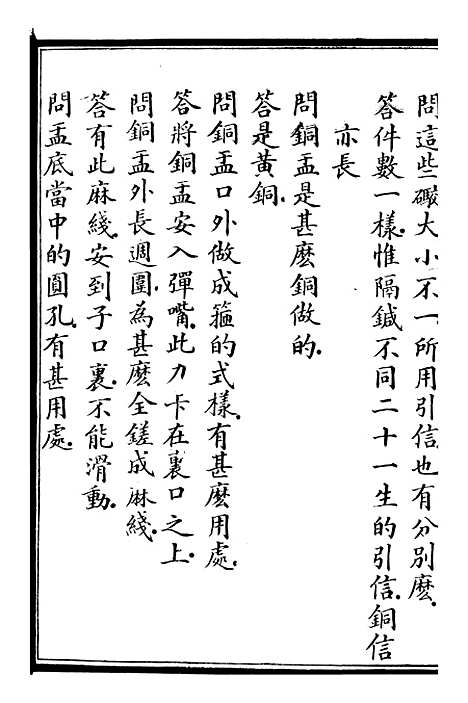 問這些礮大小不一所用引信也有分別麽
答件數一樣惟隔鍼不同二十一生的引信銅信
亦長
問銅盂是甚麽銅做的
答是黄銅
問銅盂口外做成箍的式樣有甚麽用處
答將銅盂安入彈嘴此刀卡在裏口之上
問銅盂外長週圍為甚麽全鎈成麻綫
答有此麻綫安到子口裏不能滑動
問盂底當中的圓孔有甚用處